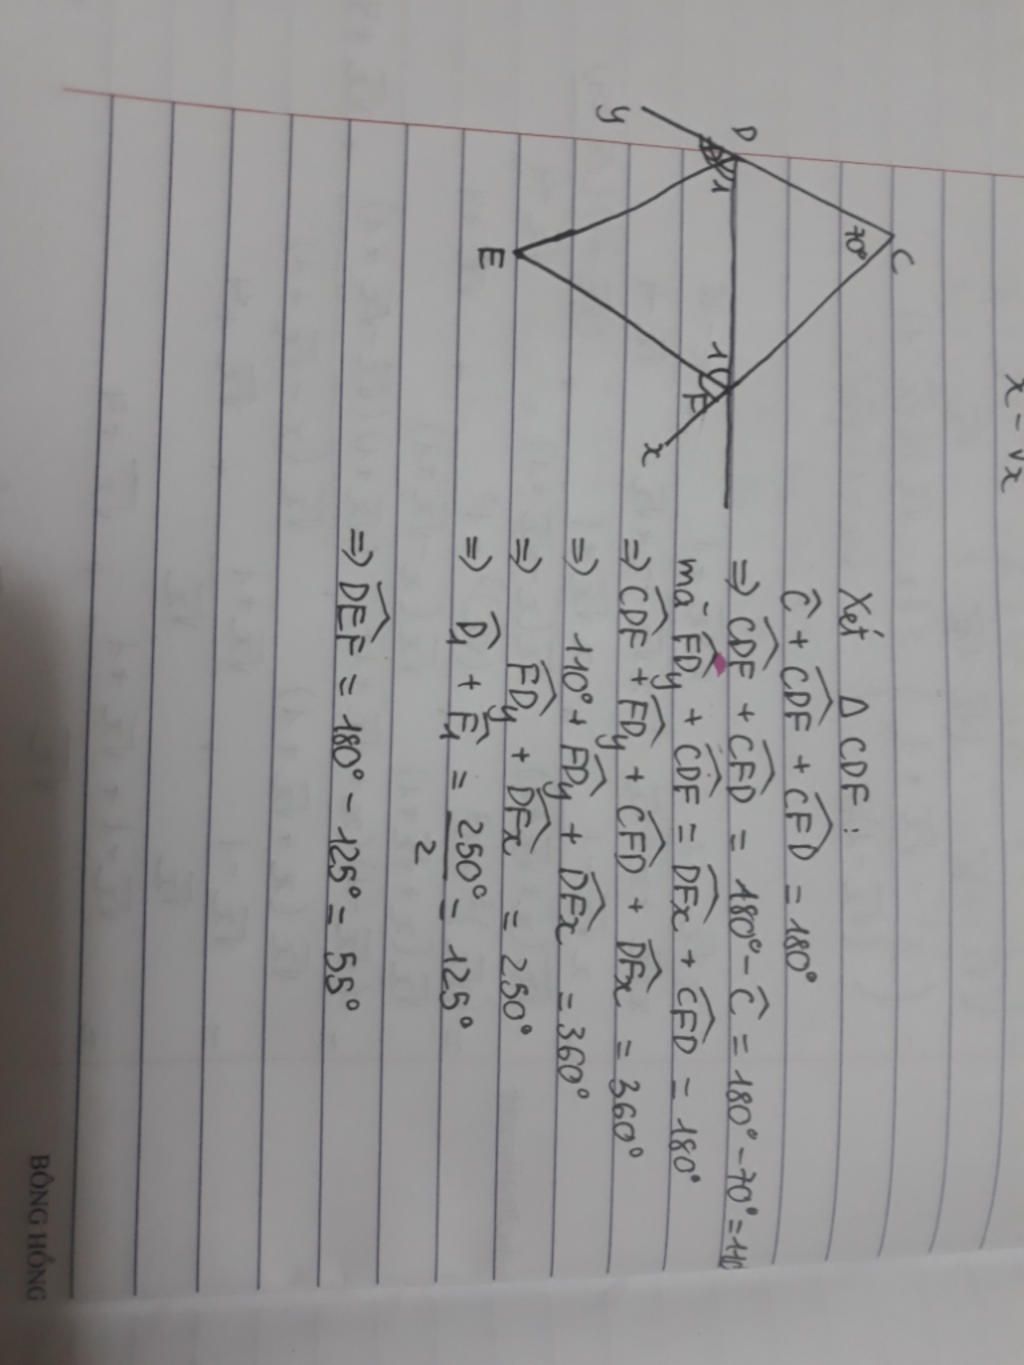 x - √x
C
70°
D
1
y
1
F
x
E
Xét Δ CDF:
Ĉ + CDF̂ + CFD̂ = 180°
=> CDF̂ + CFD̂ = 180° - Ĉ = 180° - 70° = 110
mà FDŷ + CDF̂ = DFx̂ + CFD̂ = 180°
=> CDF̂ + FDŷ + CFD̂ + DFx̂ = 360°
=> 110° + FDŷ + DFx̂ = 360°
=> FDŷ + DFx̂ = 250°
=> D̂₁ + F̂₁ = 250°/2 = 125°
=> DEF̂ = 180° - 125° = 55°
BÔNG HỒNG